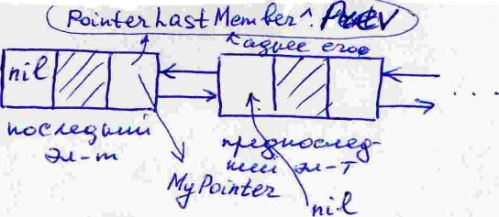 Pointer Last Member^. Prev
nil
последний
эл-т
предпослед-
ний эл-т
MyPointer
nil